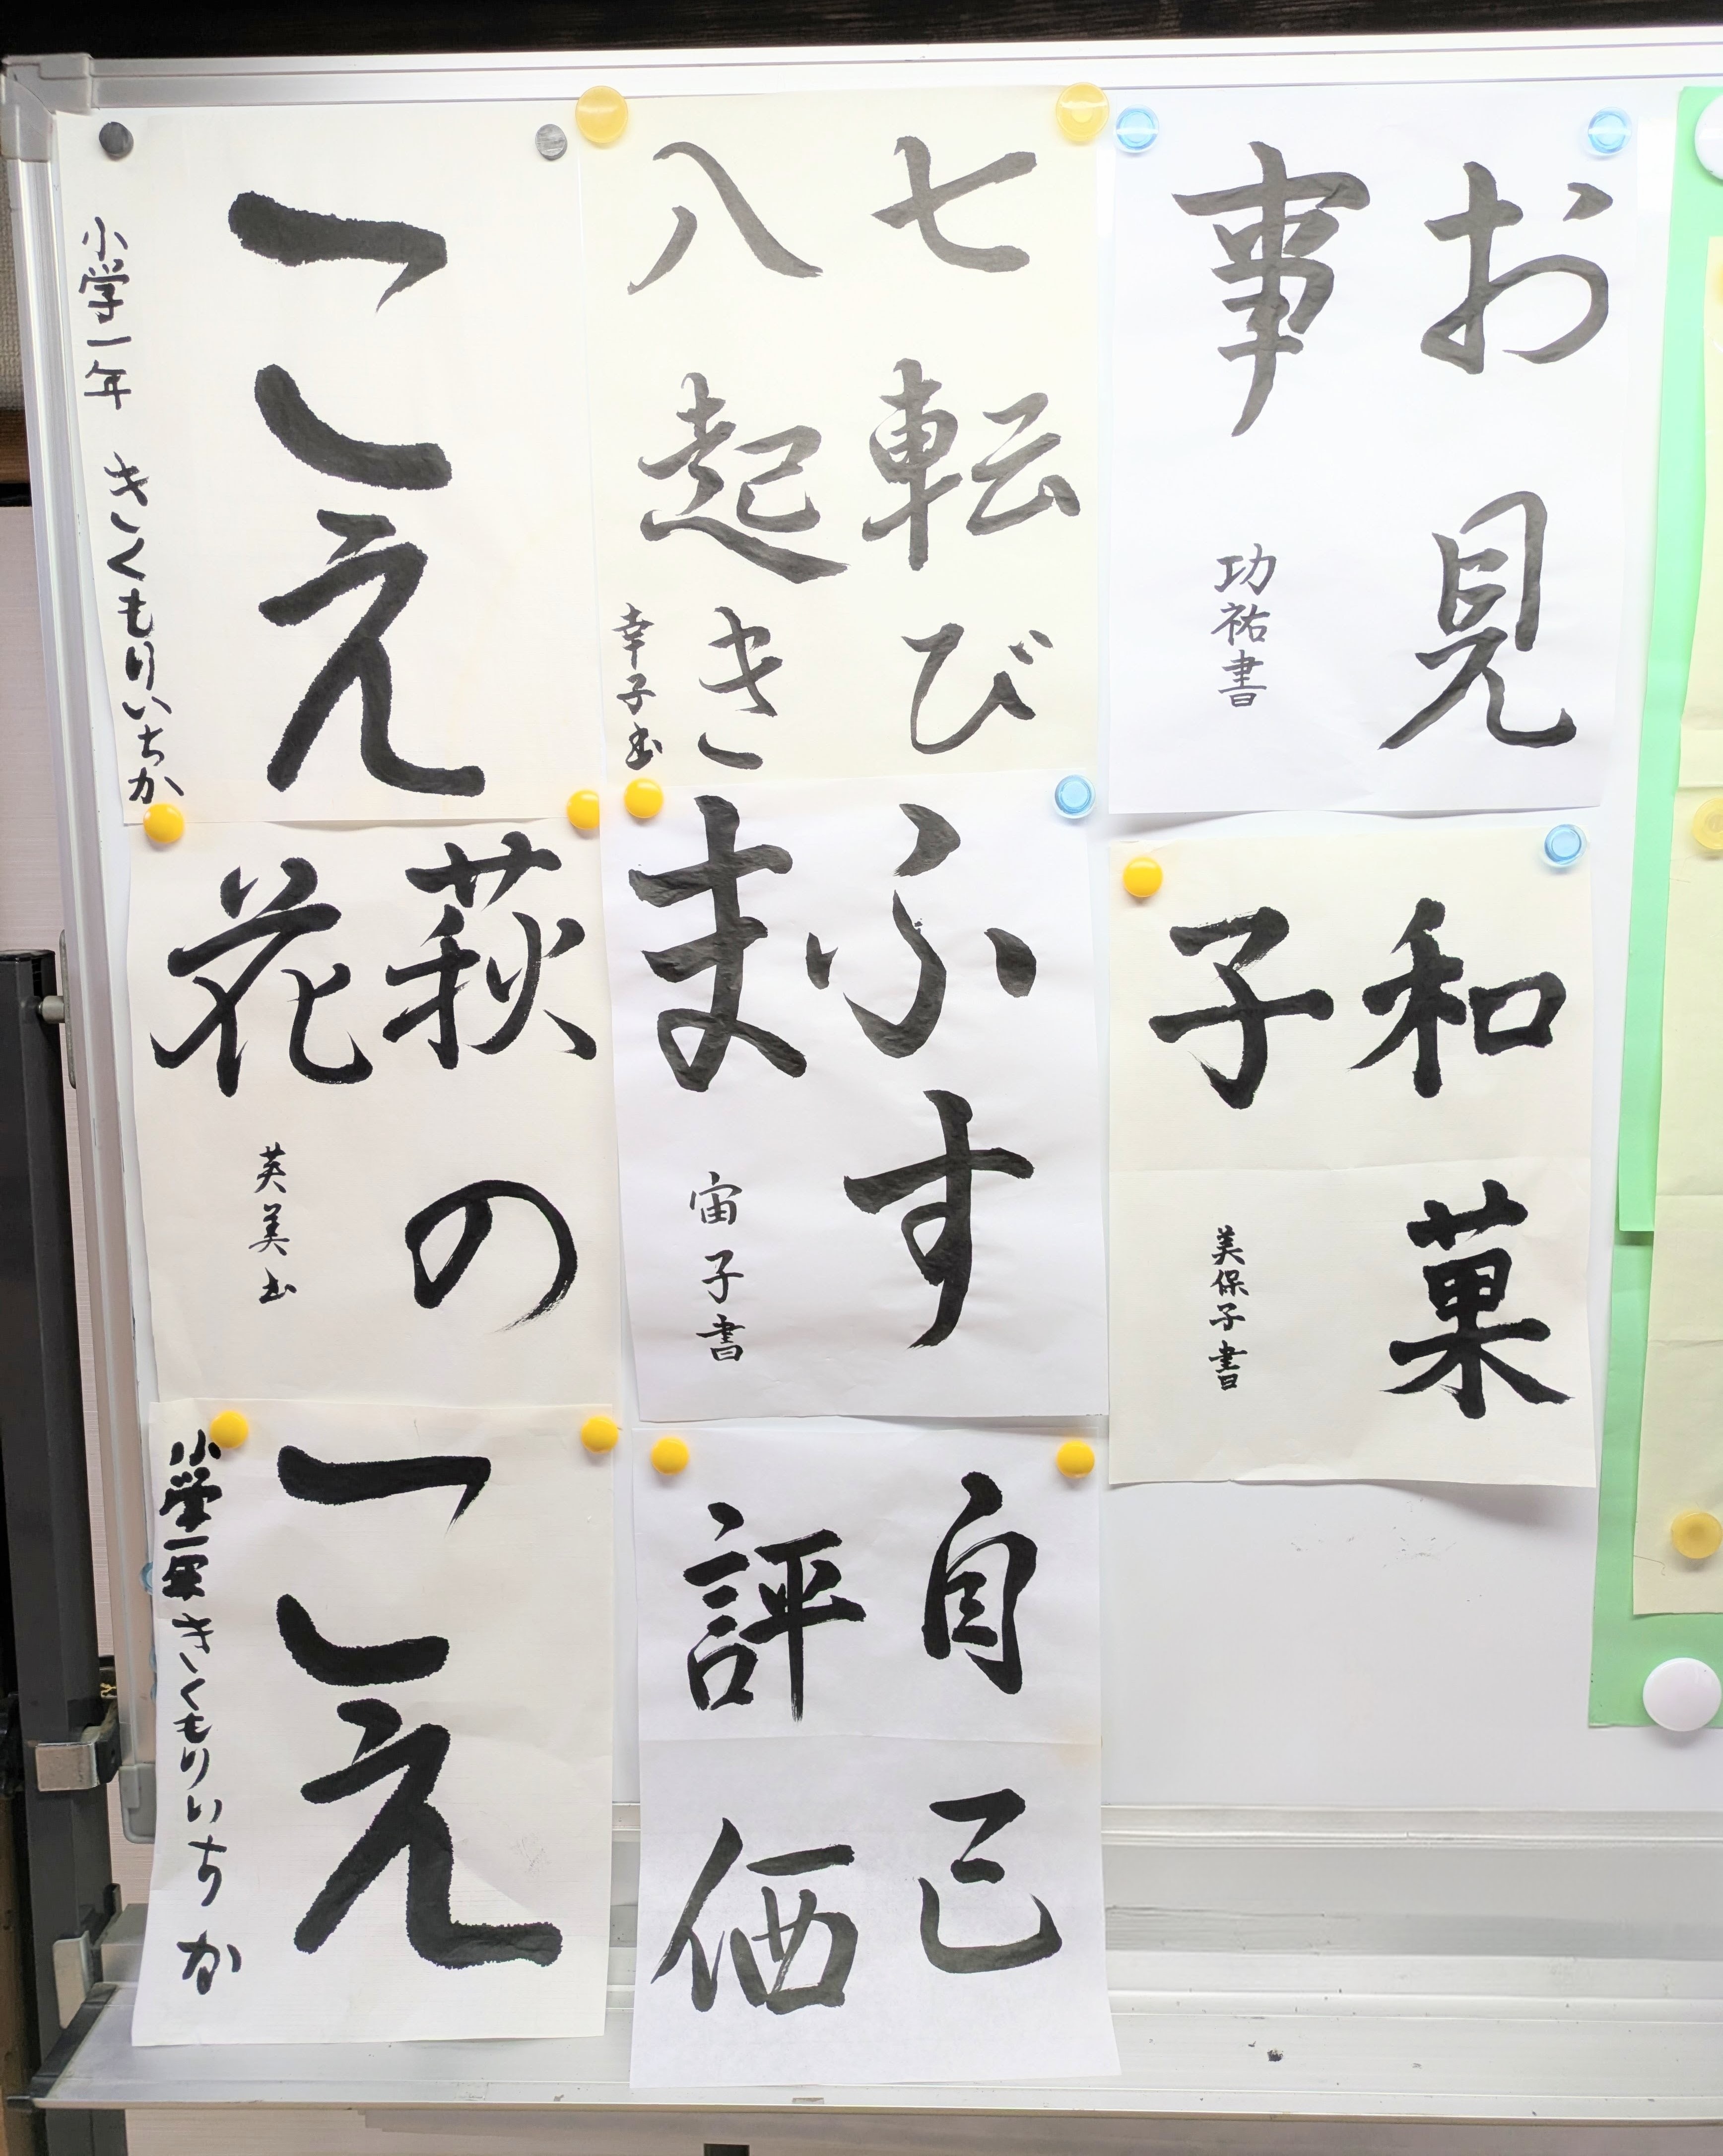 お見
事
功祐書
七転び
八起き
幸子書
こえ
小学一年 きくもりいちか
和菓
子
美保子書
ふす
ま
宙子書
萩の
花
英美書
自己
評価
こえ
小学一年 きくもりいちか